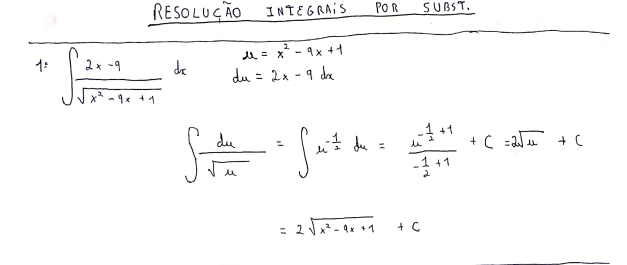 RESOLUÇÃO INTEGRAIS POR SUBST.
1: ∫ (2x - 9)/√(x² - 9x + 1) dx u = x² - 9x + 1
du = 2x - 9 dx
∫ du/√u = ∫ u^(-1/2) du = u^(-1/2 + 1)/(-1/2 + 1) + C = 2√u + C
= 2√(x² - 9x + 1) + C